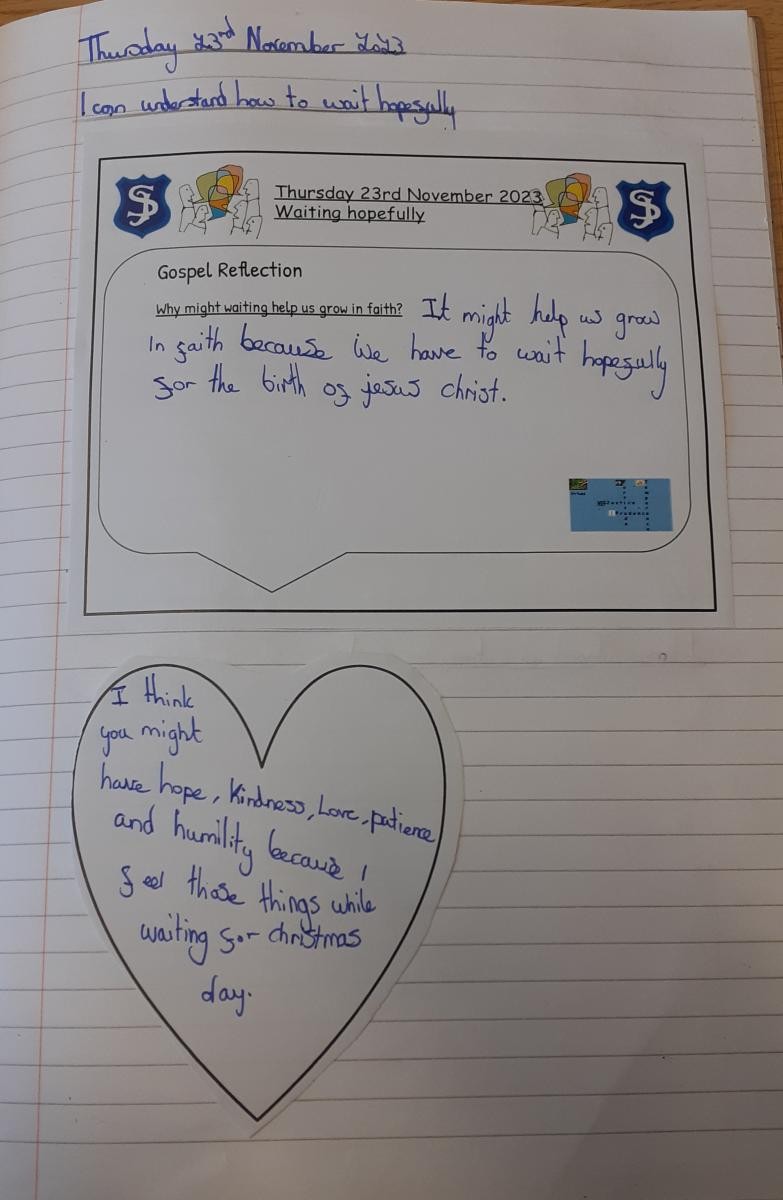 Thursday 23rd November 2023
I can understand how to wait hopefully
SJ
SJ
Thursday 23rd November 2023
Waiting hopefully
Gospel Reflection
Why might waiting help us grow in faith? It might help us grow
in faith because we have to wait hopefully
for the birth of jesus christ.
I think
you might
have hope, kindness, Love, patience
and humility because I
feel those things while
waiting for christmas
day.